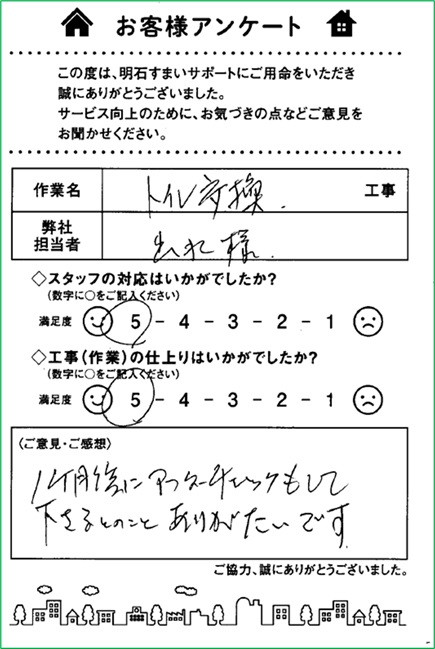 お客様アンケート
この度は、明石すまいサポートにご用命をいただき
誠にありがとうございました。
サービス向上のために、お気づきの点などご意見を
お聞かせください。
作業名 トイレ交換 工事
弊社
担当者 様
◇スタッフの対応はいかがでしたか?
(数字に○をご記入ください)
満足度 5 - 4 - 3 - 2 - 1
◇工事(作業)の仕上りはいかがでしたか?
(数字に○をご記入ください)
満足度 5 - 4 - 3 - 2 - 1
〈ご意見・ご感想〉
1ケ月後にアフターチェックもして
下さるとのこと ありがたいです
ご協力、誠にありがとうございました。